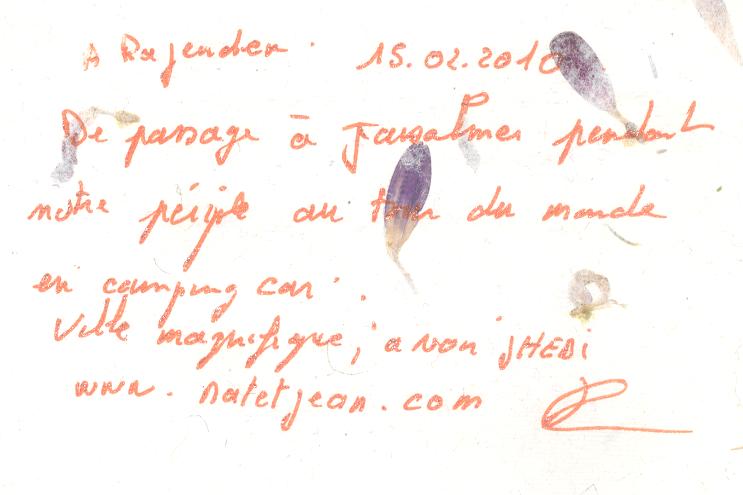 A Rajender. 15.02.2010
De passage à Jaisalmer pendant
notre périple au tour du monde
en camping car.
Ville magnifique, a voir JHEDI
www.natetjean.com